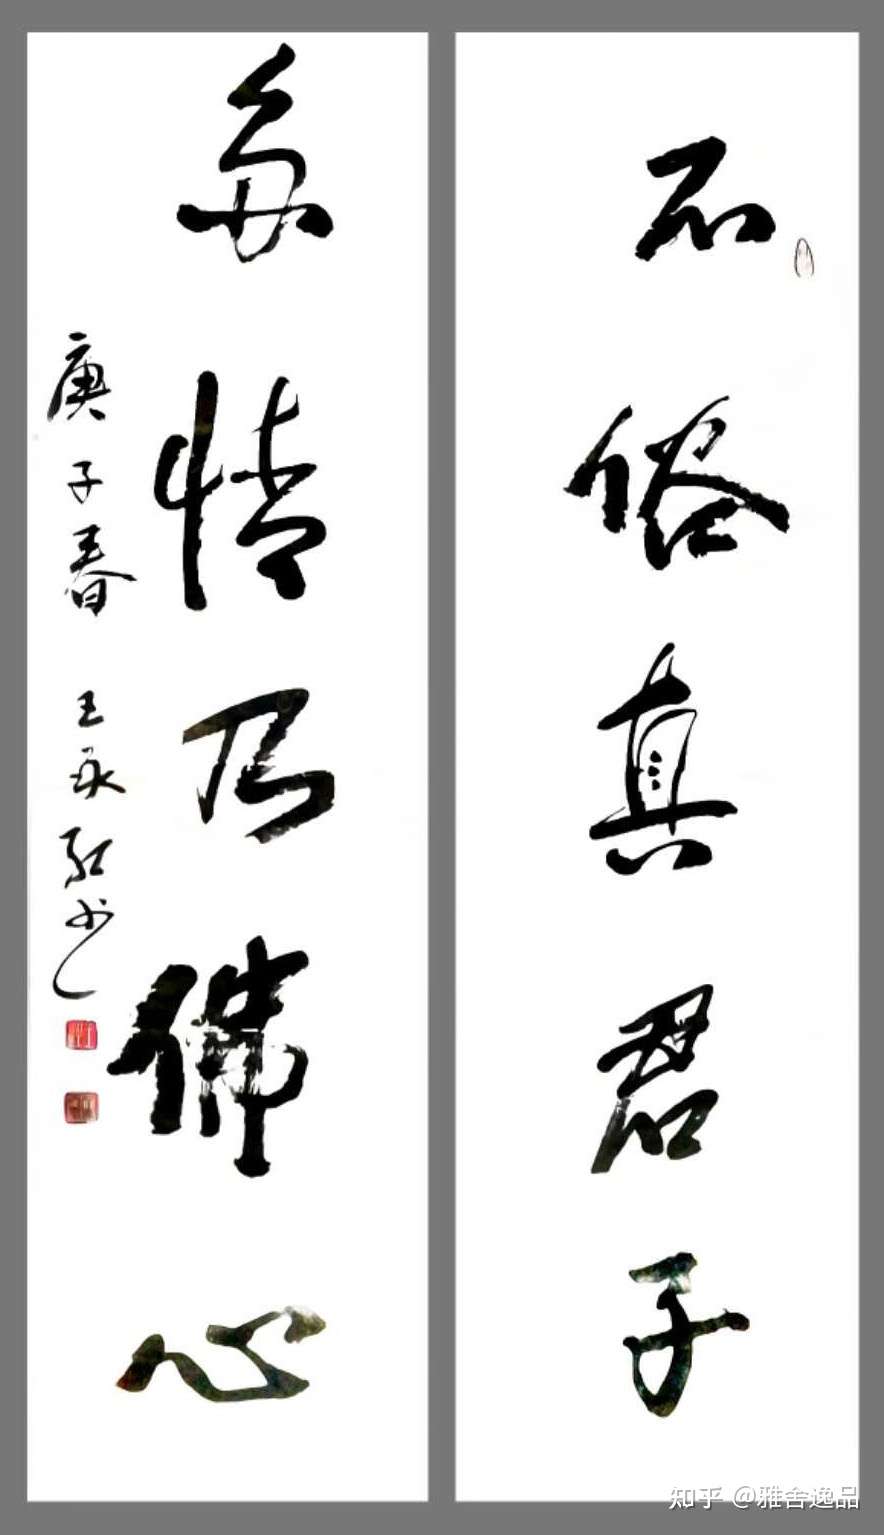 不俗真君子
多情乃佛心
庚子春 王永红书
知乎 @雅舍逸品